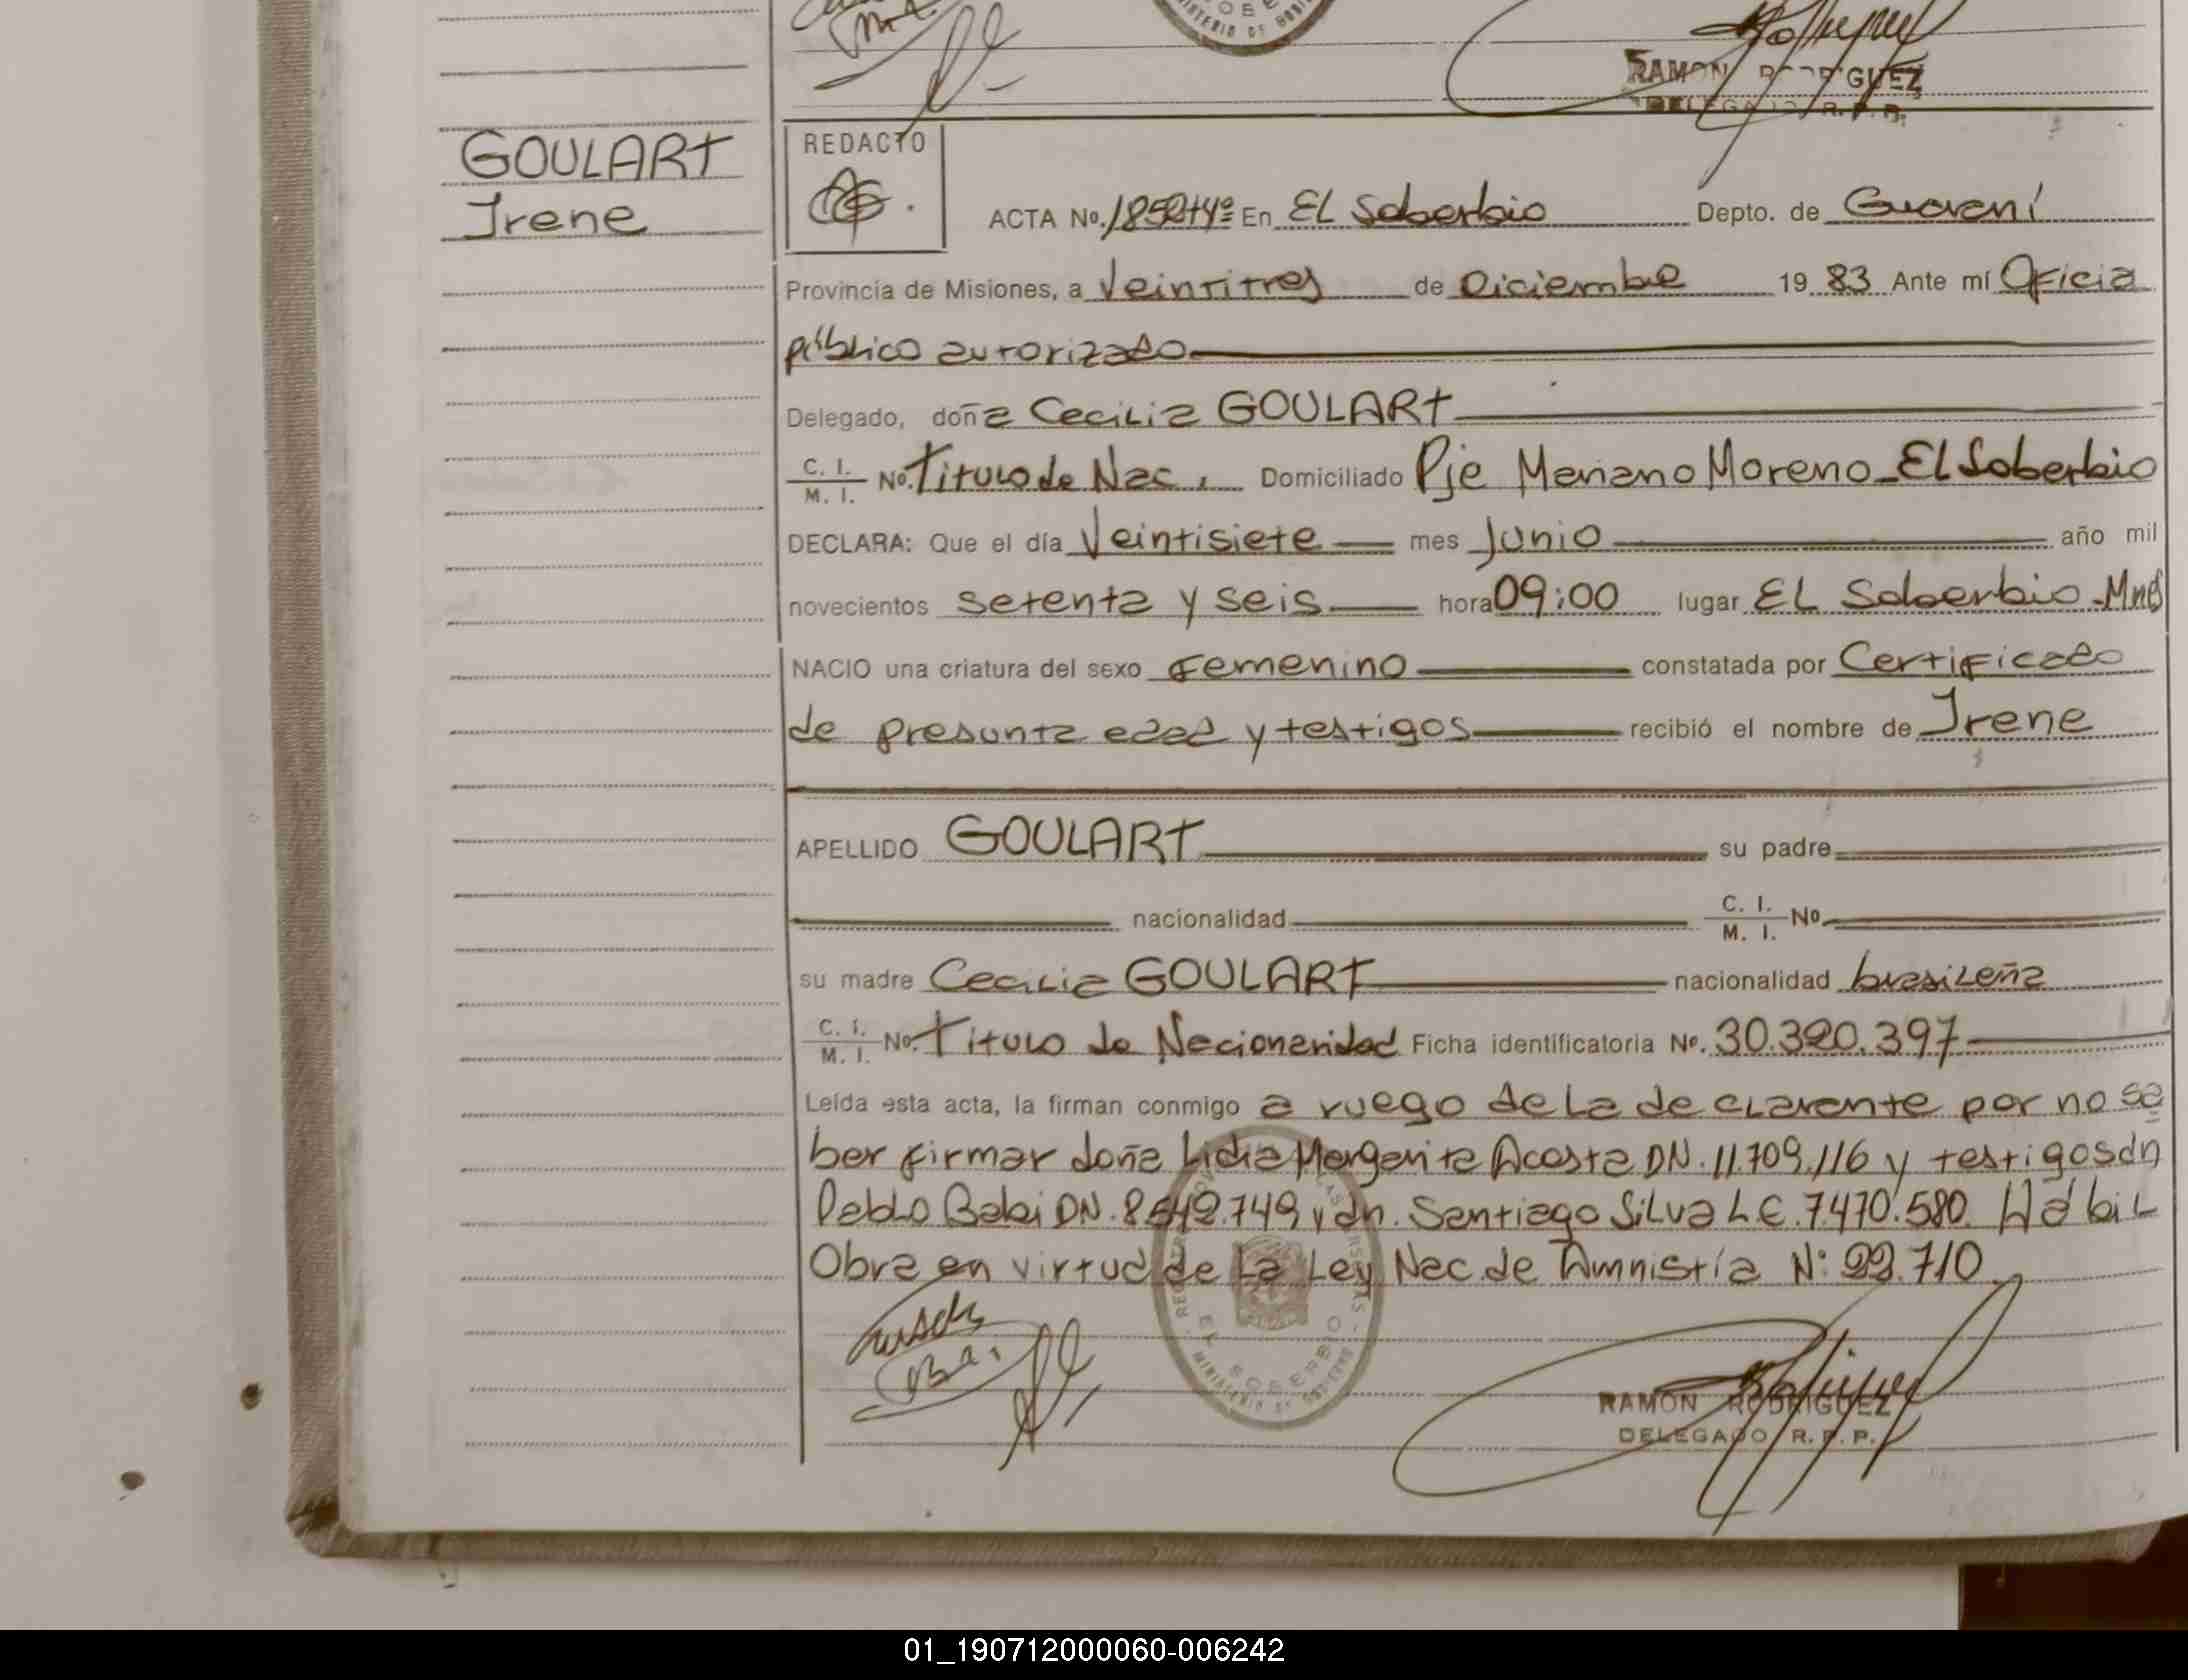 SOBE
MINISTERIO DE GOBI
RAMON RODRIGUEZ
DELEGADO R. P. P.
GOULART
Irene
REDACTO
ACTA No. 1852+4º En EL Soberbio Depto. de Guaraní
Provincia de Misiones, a Veintitres de Diciembre 19 83 Ante mí Oficia
público autorizado
Delegado, doña Cecilia GOULART
C. I. / M. I. No. Titulo de Nac. Domiciliado Pje Mariano Moreno_EL Soberbio
DECLARA: Que el día Veintisiete mes Junio año mil
novecientos setenta y seis hora 09:00 lugar EL Soberbio-Mns
NACIO una criatura del sexo femenino constatada por Certificado
de presunta edad y testigos recibió el nombre de Irene
APELLIDO GOULART su padre
nacionalidad C. I. / M. I. No
su madre Cecilia GOULART nacionalidad brasileña
C. I. / M. I. No. Titulo de Nacionalidad Ficha identificatoria No. 30.320.397
Leída esta acta, la firman conmigo a ruego de la declarante por no sa
ber firmar doña Lidia Margarita Acosta DN. 11.709.116 y testigos dn
Pablo Babi DN. 8.542.749 y dn. Santiago Silva L E. 7.470.580. Hábil
Obra en virtud de la Ley Nac. de Amnistía N: 22.710
EL SOBERBIO
MINISTERIO DE GOBIERNO
RAMON RODRIGUEZ
DELEGADO R. P. P.
01_190712000060-006242